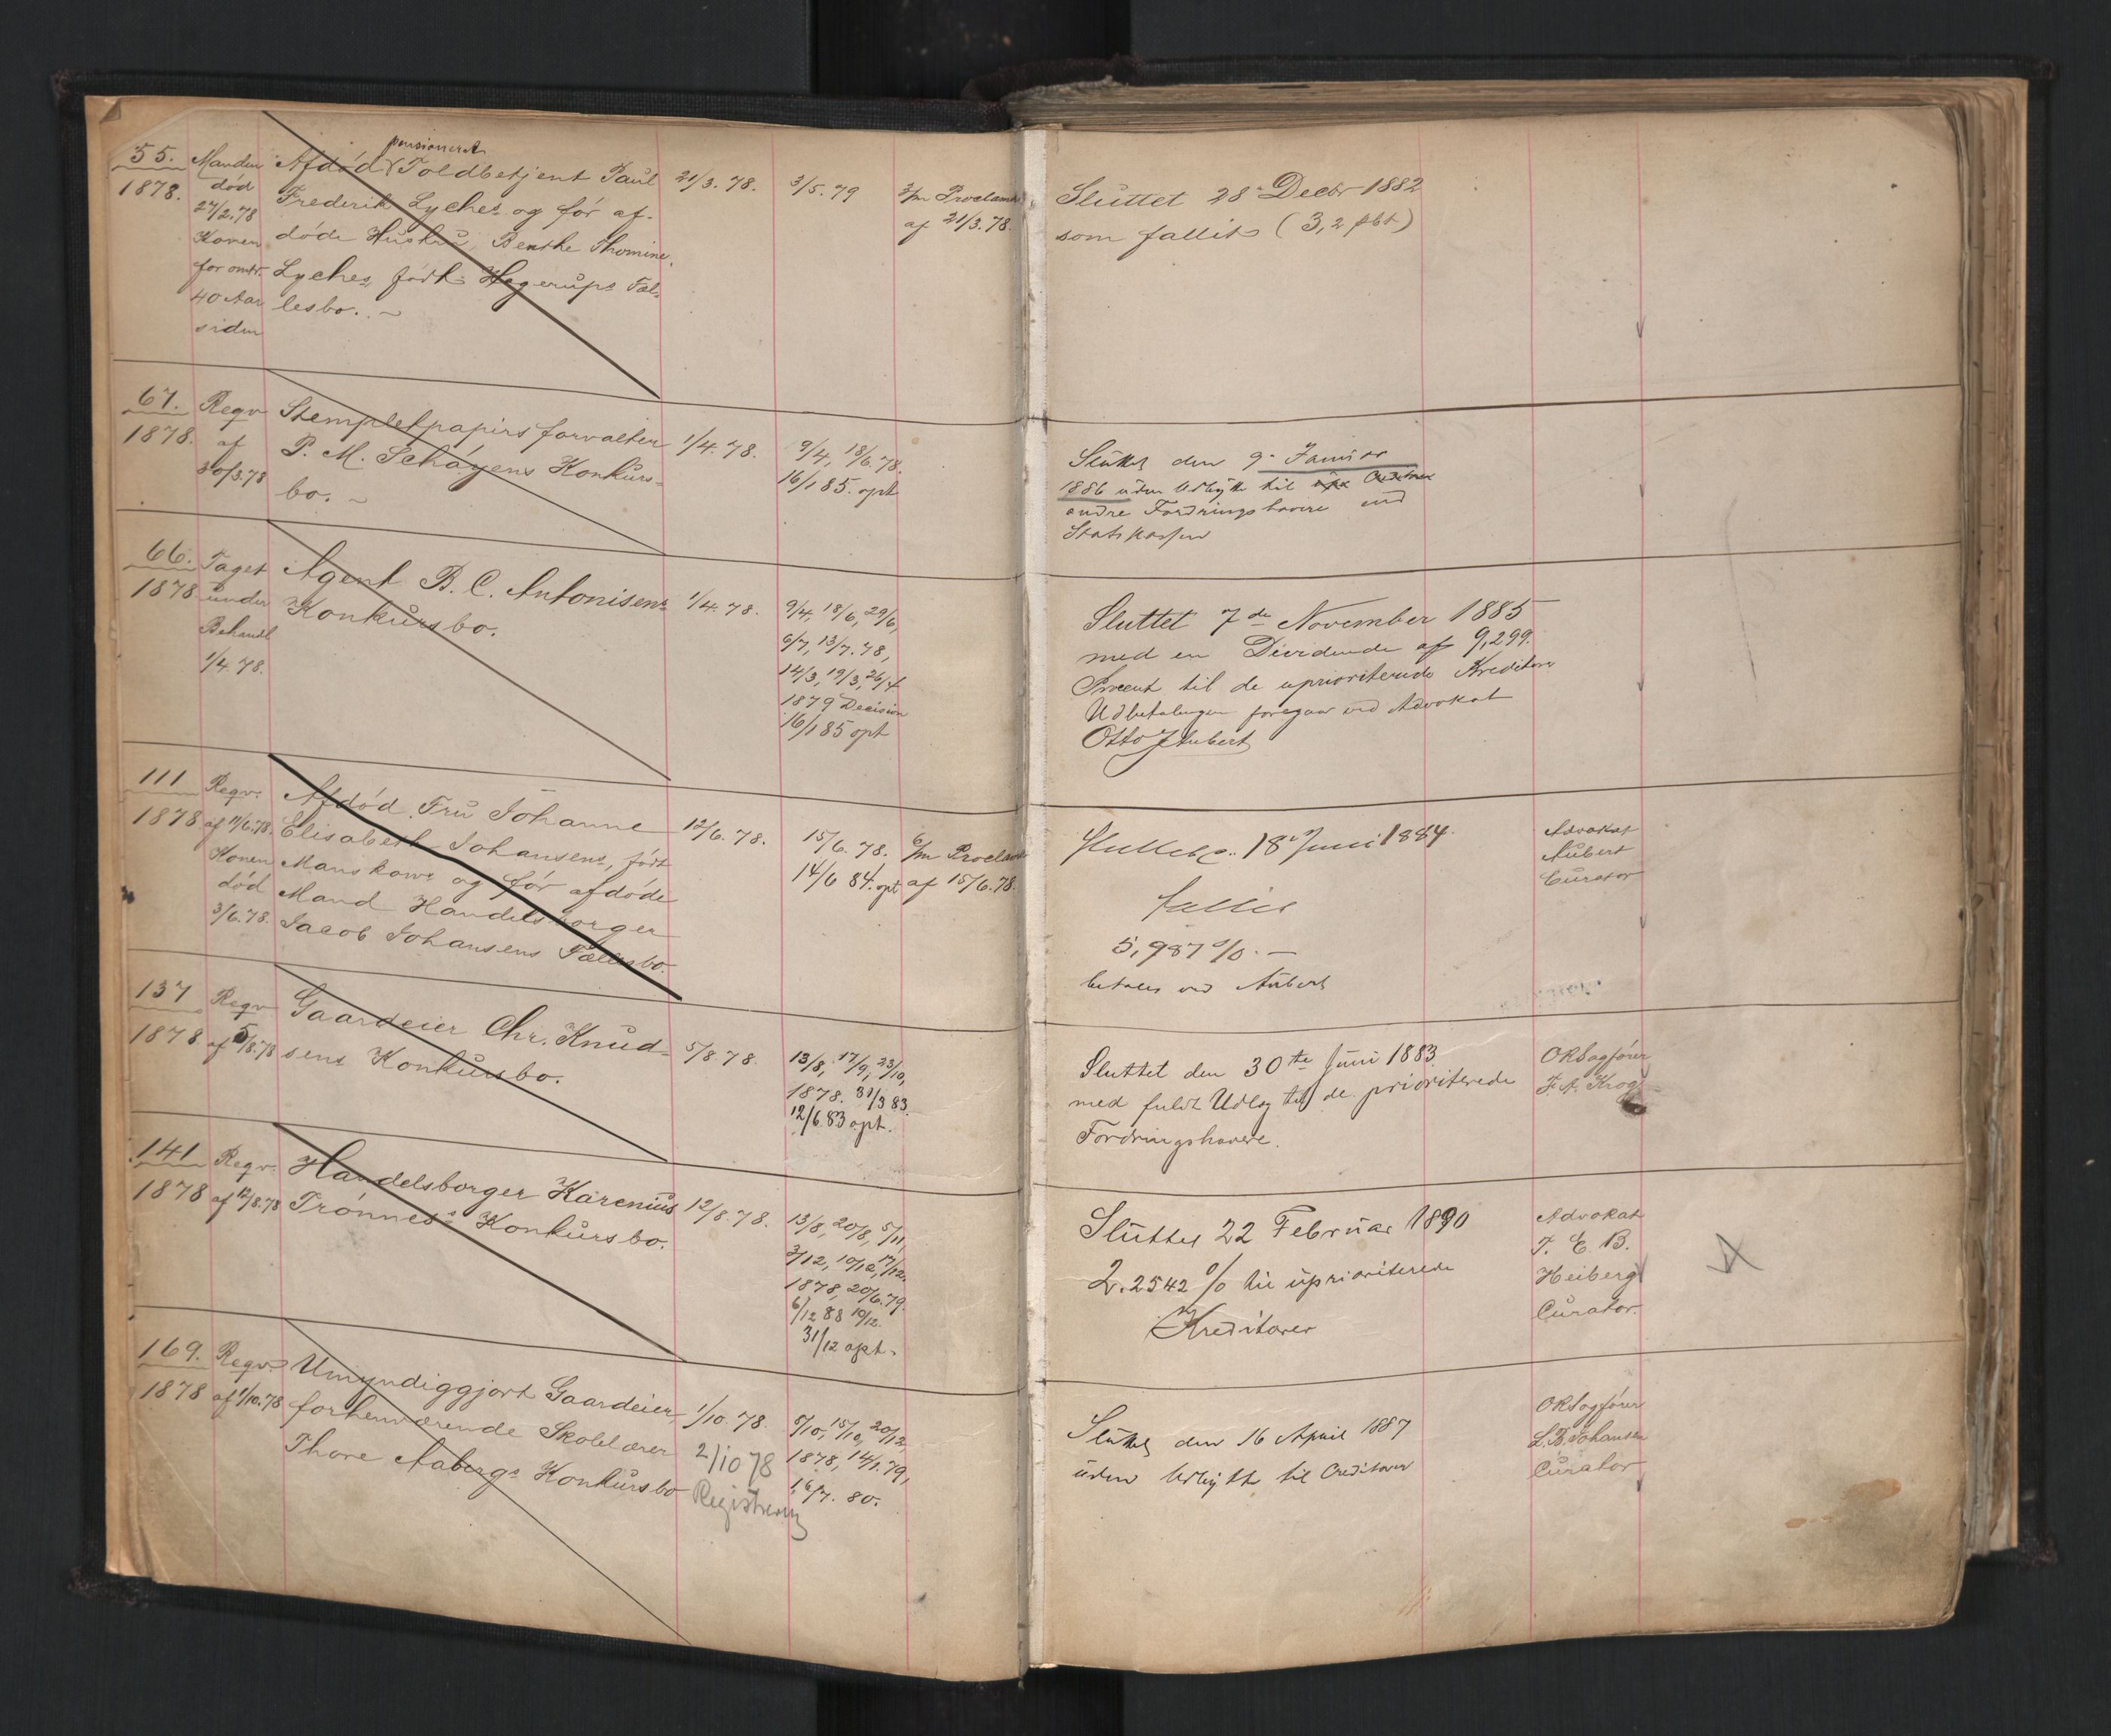 55.
1878.
Manden
død
27/2.78
Konen
for omtr.
40 Aar
siden
pensioneret
Afdød Toldbetjent Paul
Frederik Lyches og før af-
døde Hustru, Benthe Thomine
Lyches, født Hagerups Fæl-
lesbo.
21/3.78.
3/5.79
Proclama
af 21/3.78.
Sluttet 28 Decbr 1882
som fallit (3,2 pct)
67.
1878.
Reqv
af
30/3.78
Stempletpapirsforvalter
P. M. Schøyens Konkurs-
bo.
1/4.78.
9/4, 18/6.78.
16/1 85. opt
Sluttet den 9. Januar
1886 uden Udbytte til
andre Fordringshavere end
Statskassen
66.
1878
Taget
under
Behandl
1/4.78.
Agent B. C. Antonisens
Konkursbo.
1/4.78.
9/4, 18/6, 29/6,
6/7, 13/7.78,
14/3, 19/3, 26/4
1879 Decision
16/1 85 opt
Sluttet 7de November 1885
med en Dividende af 9,299
Procent til de uprioriterede Kreditorer
Udbetalingen foregaar ved Advokat
Otto Aubert
111
1878
Reqv.
af 11/6.78.
Konen
død
3/6.78.
Afdød Fru Johanne
Elisabeth Johansens, født
Manskows og før afdøde
Mand Handelsborger
Jacob Johansens Fællesbo.
12/6.78.
15/6.78.
14/6 84. opt
6/m Proclama
af 15/6.78.
Sluttet 18 Juni 1884.
fallit
5,987 %. —
betales ved Aubert
Advokat
Aubert
Curator
137
1878.
Reqv
af 5/8.78
Gaardeier Chr. Knud-
sens Konkursbo.
5/8 78.
13/8, 17/9, 23/10,
1878. 31/3 83.
12/6.83 opt.
Sluttet den 30te Juni 1883
med fuldt Udlæg til de prioriterede
Fordringshavere.
ORSagfører
F. A. Krog
141
1878
Reqv.
af 12/8.78
Handelsborger Karenius
Trønnes's Konkursbo.
12/8.78.
13/8, 20/8, 5/11,
3/12, 10/12, 17/12,
1878, 20/6.79.
6/12 88 10/12.
31/12 opt.
Sluttet 22 Februar 1890
2.2542 % til uprioriterede
Kreditorer
Advokat
J. E. B.
Heiberg
Curator.
169.
1878
Reqv.
af 1/10.78
Umyndiggjort Gaardeier,
forhenværende Skolelærer
Thore Aabergs Konkursbo
1/10.78.
2/10 78
Registrering
8/10, 15/10, 20/12
1878, 14/1.79,
16/7. 80.
Sluttet den 16 April 1887
uden Udbytte til Creditorer
ORSagfører
L. B. Johansen
Curator